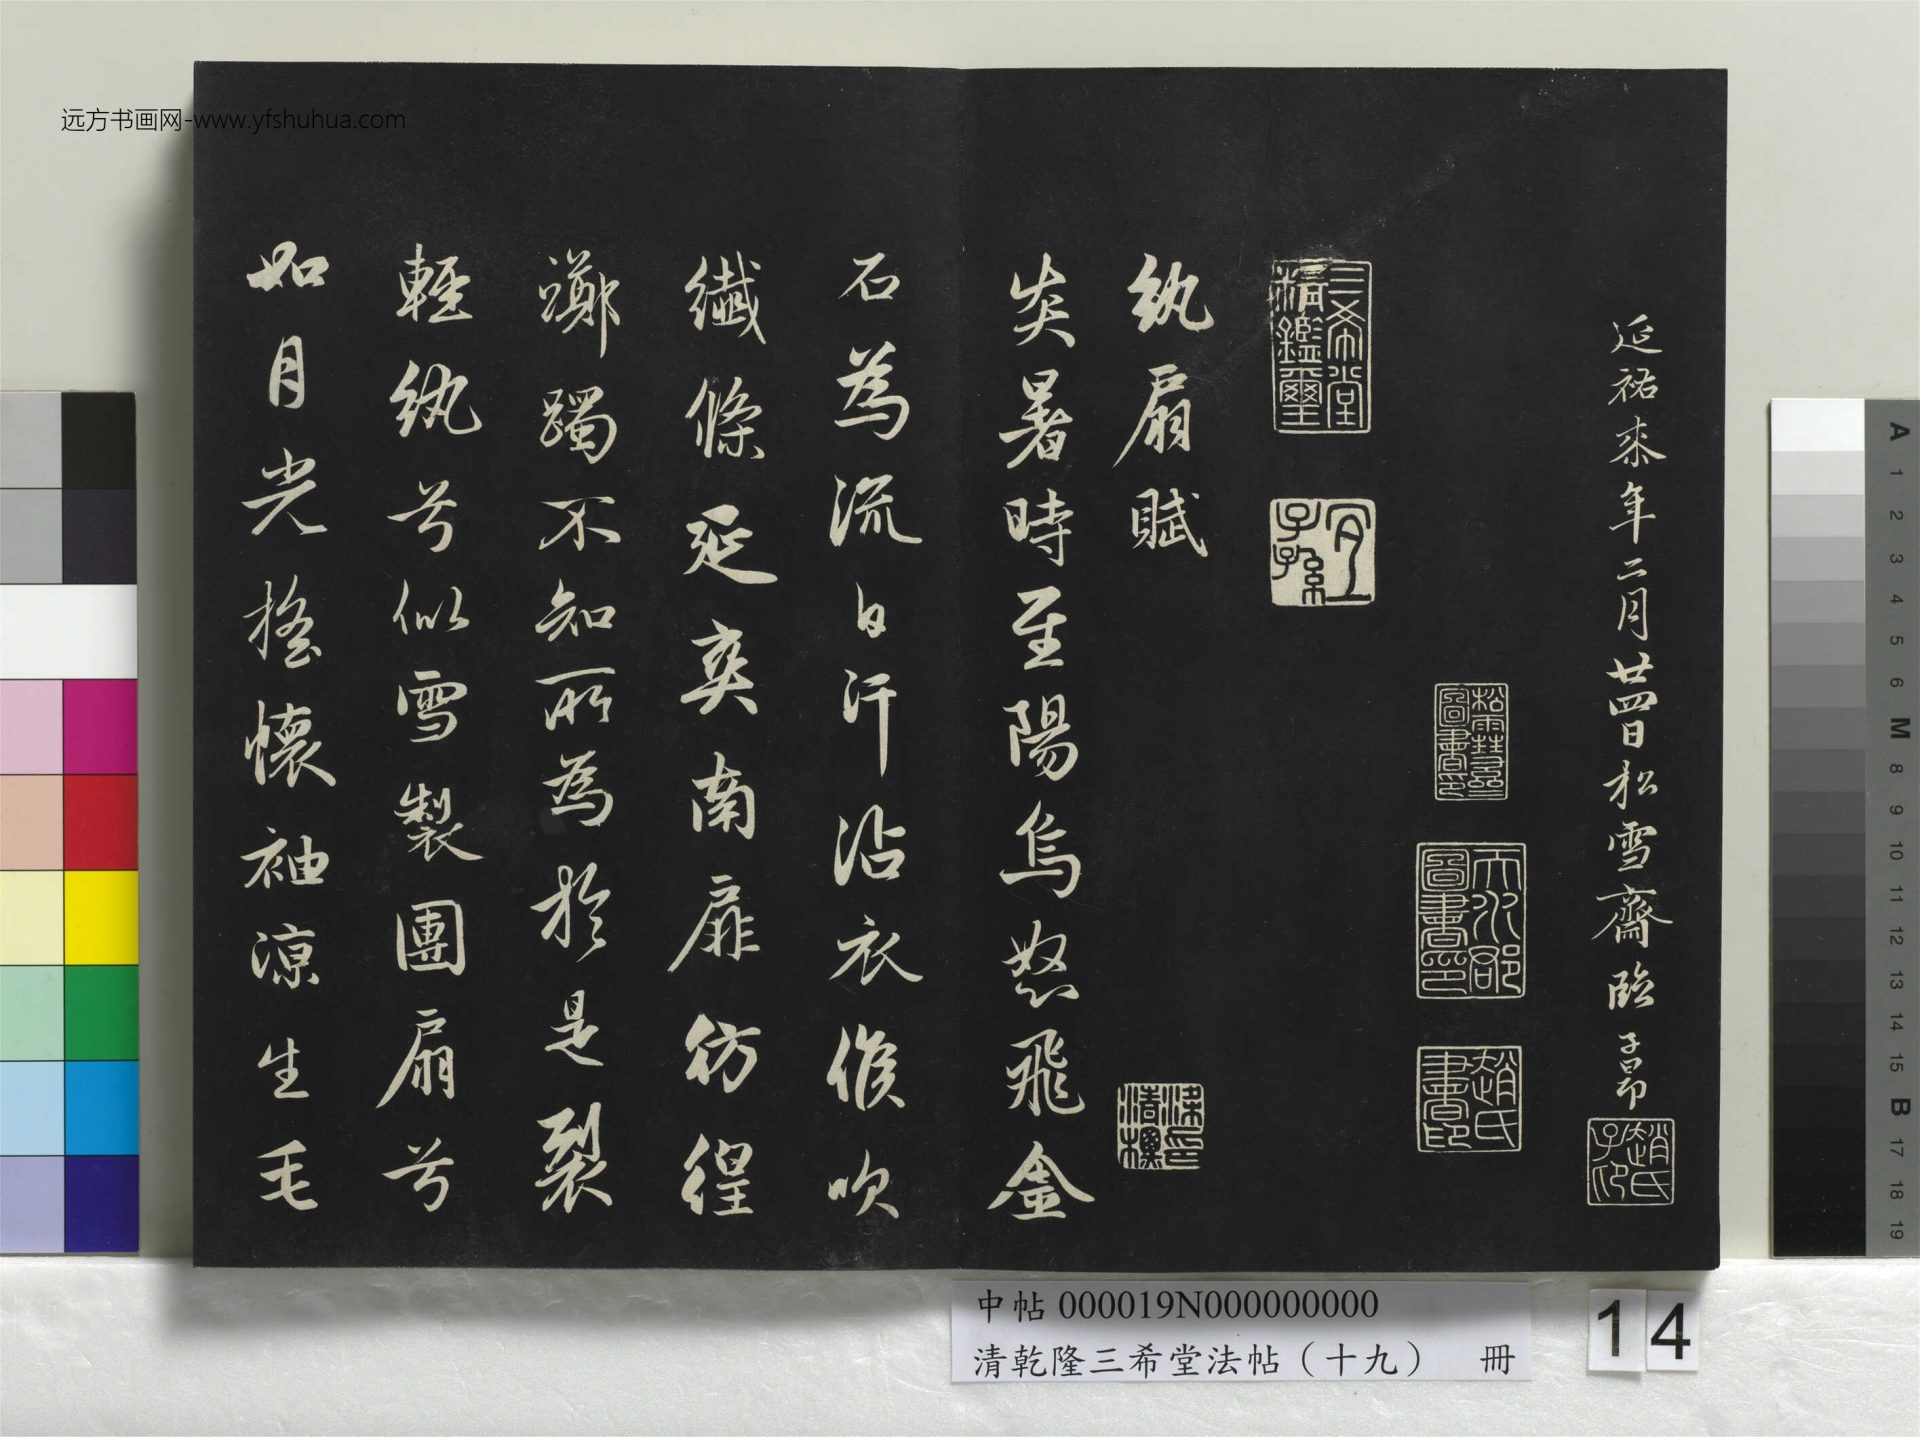 延祐桼年二月廿四日松雪齋臨子昂
趙氏子昂
松雪齋圖書印
天水郡圖書印
趙氏書印
三希堂精鑑璽
宜子孫
紈扇賦
炎暑時至陽烏怒飛金
石為流白汗沾衣候吹
纖條延爽南扉彷徨
躑躅不知所為於是裂
輕紈兮似雪製團扇兮
如月光搖懷袖涼生毛
远方书画网-www.yfshuhua.com
中帖 000019N000000000
清乾隆三希堂法帖（十九） 冊
14
A 1 2 3 4 5 6 M 8 9 10 11 12 13 14 15 B 17 18 19